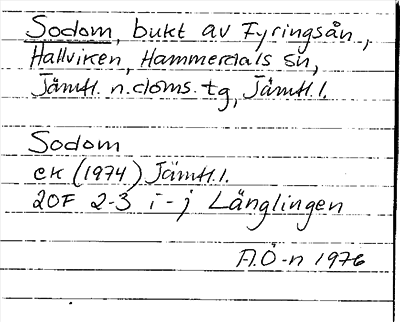 Sodom, bukt av Fyringsån,
Hallviken, Hammerdals sn,
Jämtl. n. doms. tg, Jämtl. l.
Sodom
ek (1974) Jämtl. l.
20F 2-3 i-j Långlingen
A.Ö-n 1976